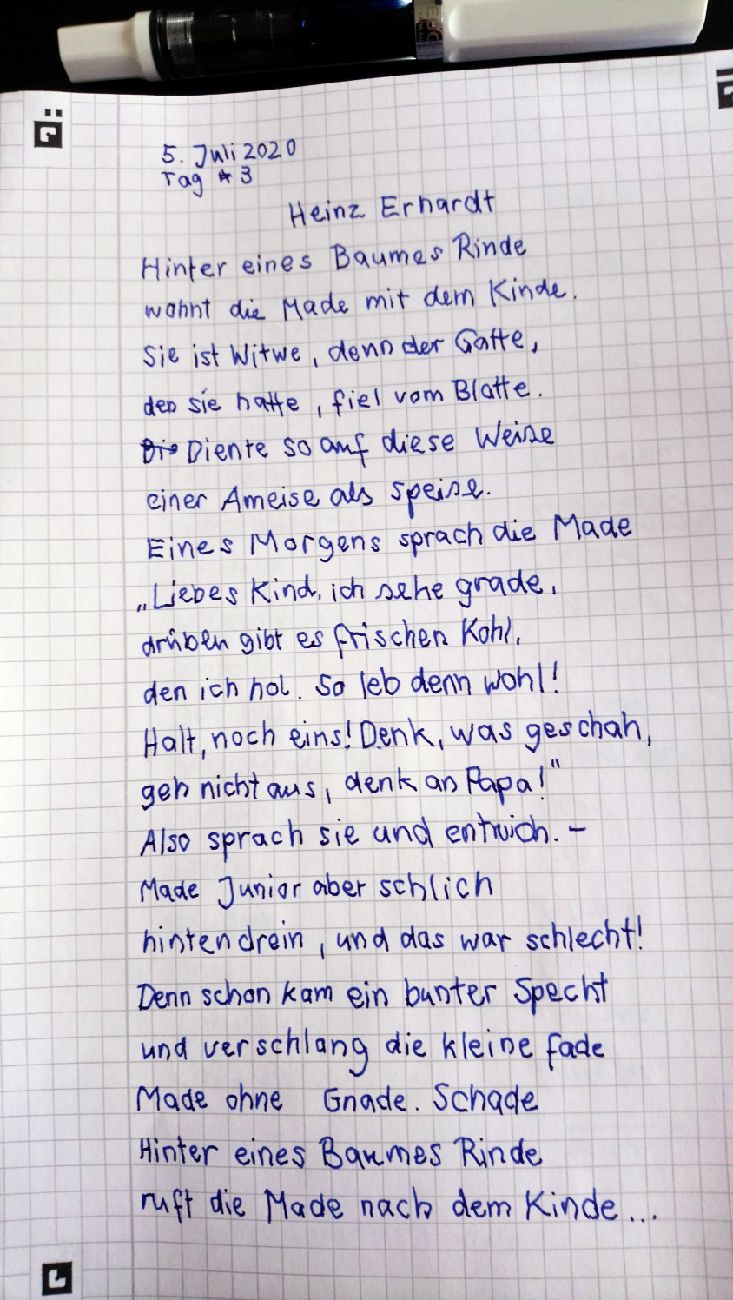 5. Juli 2020
Tag #3
Heinz Erhardt
Hinter eines Baumes Rinde
wohnt die Made mit dem Kinde.
Sie ist Witwe, denn der Gatte,
den sie hatte, fiel vom Blatte.
Die Diente so auf diese Weise
einer Ameise als Speise.
Eines Morgens sprach die Made
„Liebes Kind, ich sehe grade,
drüben gibt es frischen Kohl,
den ich hol. So leb denn wohl!
Halt, noch eins! Denk, was geschah,
geh nicht aus, denk an Papa!"
Also sprach sie und entwich. –
Made Junior aber schlich
hintendrein, und das war schlecht!
Denn schon kam ein bunter Specht
und verschlang die kleine fade
Made ohne Gnade. Schade
Hinter eines Baumes Rinde
ruft die Made nach dem Kinde...